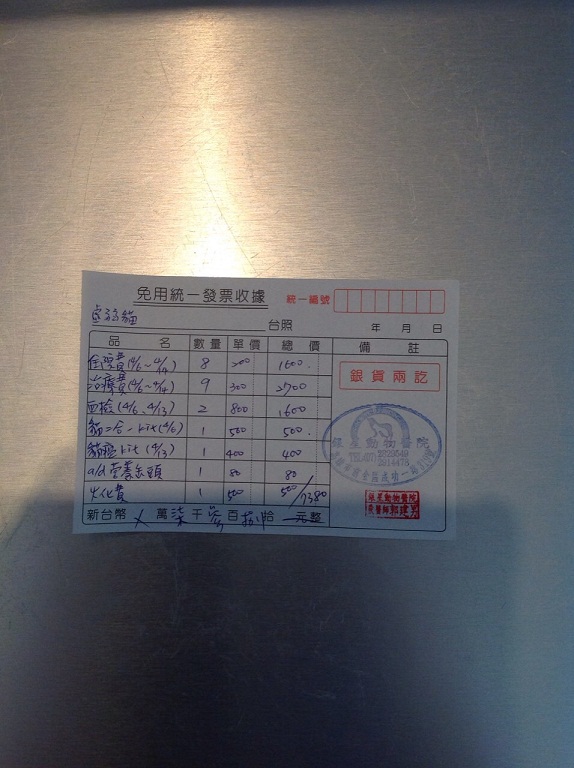 免用統一發票收據
統一編號
台照
年 月 日
品 名 數量 單價 總價 備註
住院費(4/6~4/14) 8 200 1600.
治療費(4/6~4/14) 9 300 2700
血檢(4/6、4/13) 2 800 1600
貓二合一kit(4/6) 1 500 500.
貓瘟kit(4/13) 1 400 400
a/d營養罐頭 1 80 80
火化費 1 500 500
7380
新台幣 萬柒千參百捌拾 元整
銀貨兩訖
銀星動物醫院